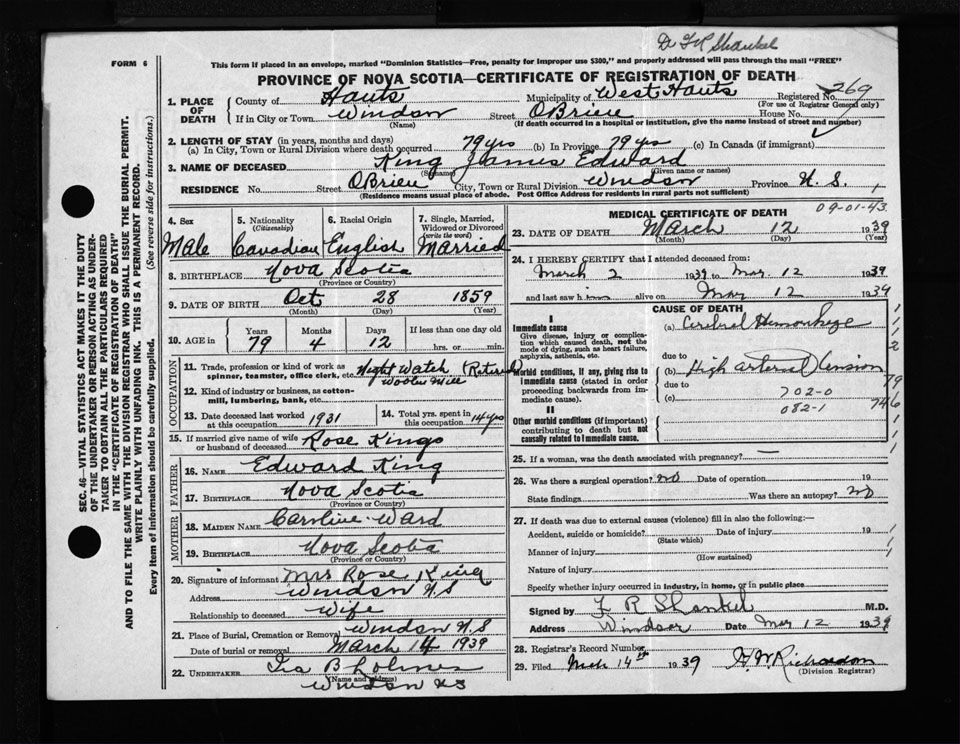 Dr F R Shankel
FORM 6
This form if placed in an envelope, marked "Dominion Statistics—Free, penalty for improper use $300," and properly addressed will pass through the mail "FREE"
PROVINCE OF NOVA SCOTIA—CERTIFICATE OF REGISTRATION OF DEATH
1. PLACE OF DEATH County of Hants Municipality of West Hants Registered No. 269
(For use of Registrar General only)
If in City or Town Windsor Street OBrien House No.
(Name) (If death occurred in a hospital or institution, give the name instead of street and number)
2. LENGTH OF STAY (in years, months and days)
(a) In City, Town or Rural Division where death occurred 79 yrs (b) In Province 79 yrs (c) In Canada (if immigrant)
3. NAME OF DECEASED King James Edward
(Surname) (Given name or names)
RESIDENCE No. Street OBrien City, Town or Rural Division Windsor Province N. S.
(Residence means usual place of abode. Post Office Address for residents in rural parts not sufficient)
4. Sex Male
5. Nationality (Citizenship) Canadian
6. Racial Origin English
7. Single, Married, Widowed or Divorced (write the word) Married
8. BIRTHPLACE Nova Scotia
(Province or Country)
9. DATE OF BIRTH Oct 28 1859
(Month) (Day) (Year)
10. AGE in Years 79 Months 4 Days 12 If less than one day old hrs. or min.
OCCUPATION
11. Trade, profession or kind of work as spinner, teamster, office clerk, etc. Night Watch (Retired)
12. Kind of industry or business, as cotton-mill, lumbering, bank, etc. Woolen Mill
13. Date deceased last worked at this occupation 1931
14. Total yrs. spent in this occupation 14 yrs
15. If married give name of wife or husband of deceased Rose King
FATHER
16. NAME Edward King
17. BIRTHPLACE Nova Scotia
(Province or Country)
MOTHER
18. MAIDEN NAME Caroline Ward
19. BIRTHPLACE Nova Scotia
(Province or Country)
20. Signature of informant Mrs Rose King
Address Windsor N S
Relationship to deceased Wife
21. Place of Burial, Cremation or Removal Windsor N. S
Date of burial or removal March 14 1939
22. UNDERTAKER Ira B Lohnes
(Name and address)
Windsor N S
09-01-43
MEDICAL CERTIFICATE OF DEATH
23. DATE OF DEATH March 12 1939
(Month) (Day) (Year)
24. I HEREBY CERTIFY that I attended deceased from:
March 2 1939 to Mar. 12 1939
and last saw him alive on Mar 12 1939
CAUSE OF DEATH
I
Immediate cause
Give disease, injury or complication which caused death, not the mode of dying, such as heart failure, asphyxia, asthenia, etc.
(a) Cerebral Hemorrhage
due to
Morbid conditions, if any, giving rise to immediate cause (stated in order proceeding backwards from immediate cause).
(b) High arterial tension
due to
(c) 702-0
082-1
79
746
II
Other morbid conditions (if important) contributing to death but not causally related to immediate cause.
25. If a woman, was the death associated with pregnancy? —
26. Was there a surgical operation? no Date of operation 19
State findings Was there an autopsy? no
27. If death was due to external causes (violence) fill in also the following:—
Accident, suicide or homicide? Date of injury 19
(State which)
Manner of injury
(How sustained)
Nature of injury
Specify whether injury occurred in industry, in home, or in public place
Signed by F R Shankel M.D.
Address Windsor Date Mar 12 1939
28. Registrar's Record Number
29. Filed Mch 14th 1939 H W Richardson
(Division Registrar)
SEC. 46—VITAL STATISTICS ACT MAKES IT THE DUTY
OF THE UNDERTAKER OR PERSON ACTING AS UNDER-
TAKER TO OBTAIN ALL THE PARTICULARS REQUIRED
IN THE "CERTIFICATE OF REGISTRATION OF DEATH"
AND TO FILE THE SAME WITH THE DIVISION REGISTRAR WHO SHALL ISSUE THE BURIAL PERMIT.
WRITE PLAINLY WITH UNFADING INK. THIS IS A PERMANENT RECORD.
Every item of information should be carefully supplied. (See reverse side for instructions.)